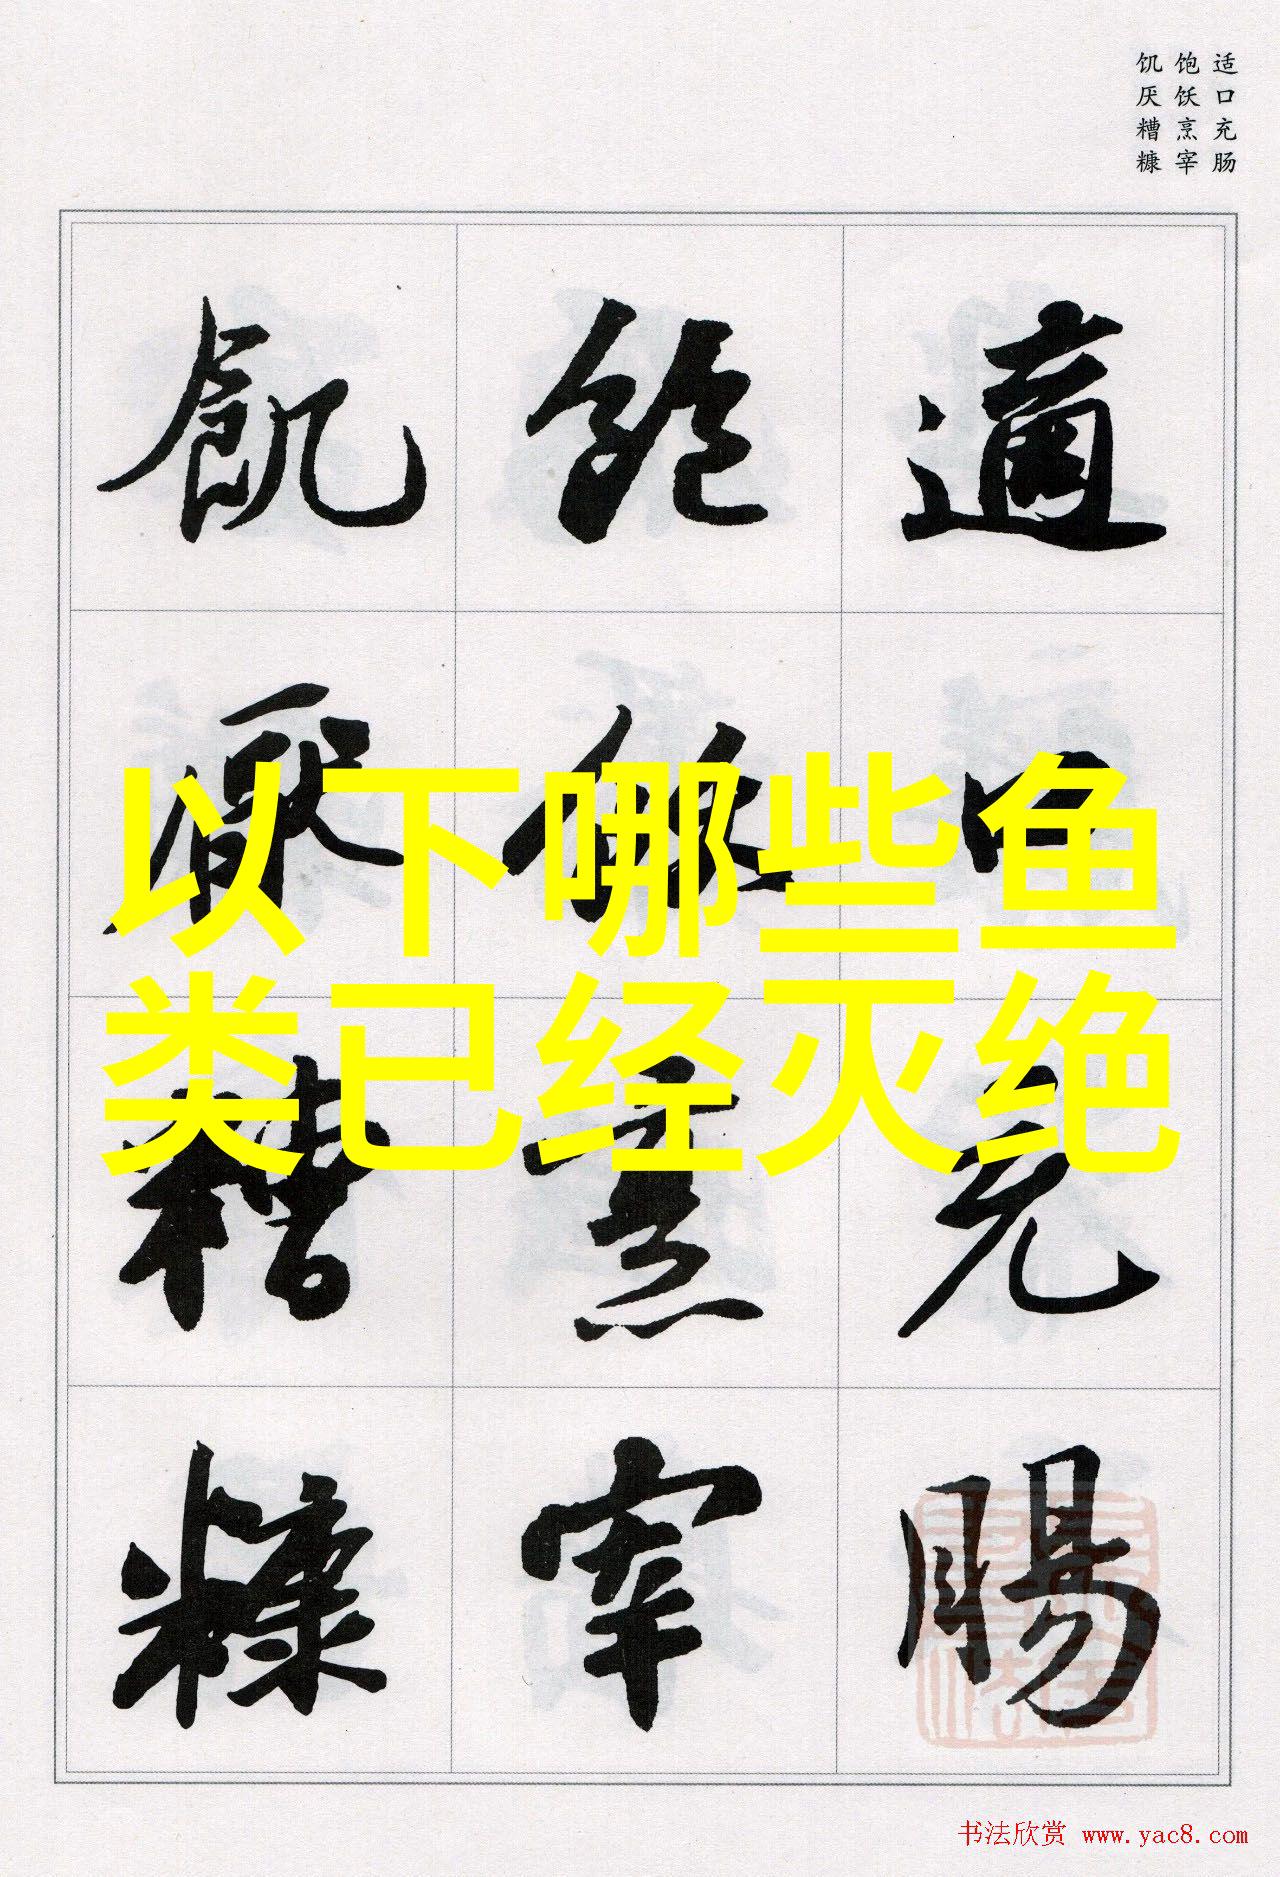 适口充肠
饱饫烹宰
饥厌糟糠
適口充腸
飽飫烹宰
飢厭糟糠
以下哪些鱼
类已经灭绝
书法欣赏 www.yac8.com